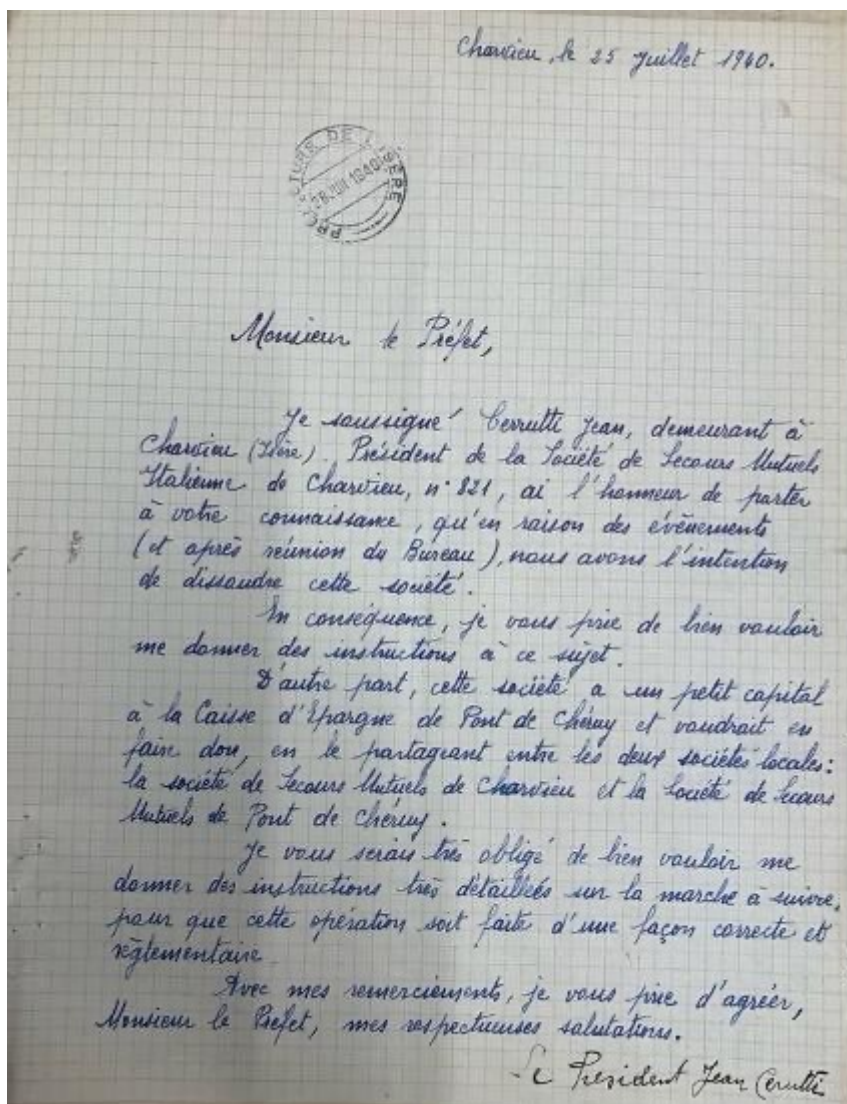 Charvieu, le 25 Juillet 1940.
PRÉFECTURE DE L'ISÈRE
26 JUIL 1940
Monsieur le Préfet,
Je soussigné Cerrutti Jean, demeurant à
Charvieu (Isère). Président de la Société de Secours Mutuels
Italienne de Charvieu, n° 821, ai l'honneur de porter
à votre connaissance, qu'en raison des évènements
(et après réunion du Bureau), nous avons l'intention
de dissoudre cette société.
En conséquence, je vous prie de bien vouloir
me donner des instructions à ce sujet.
D'autre part, cette société a un petit capital
à la Caisse d'Epargne de Pont de Chéruy et voudrait en
faire don, en le partageant entre les deux sociétés locales:
la société de Secours Mutuels de Charvieu et la Société de Secours
Mutuels de Pont de Chéruy.
Je vous serais très obligé de bien vouloir me
donner des instructions très détaillées sur la marche à suivre,
pour que cette opération soit faite d'une façon correcte et
règlementaire
Avec mes remerciements, je vous prie d'agréer,
Monsieur le Préfet, mes respectueuses salutations.
Le Président Jean Cerutti